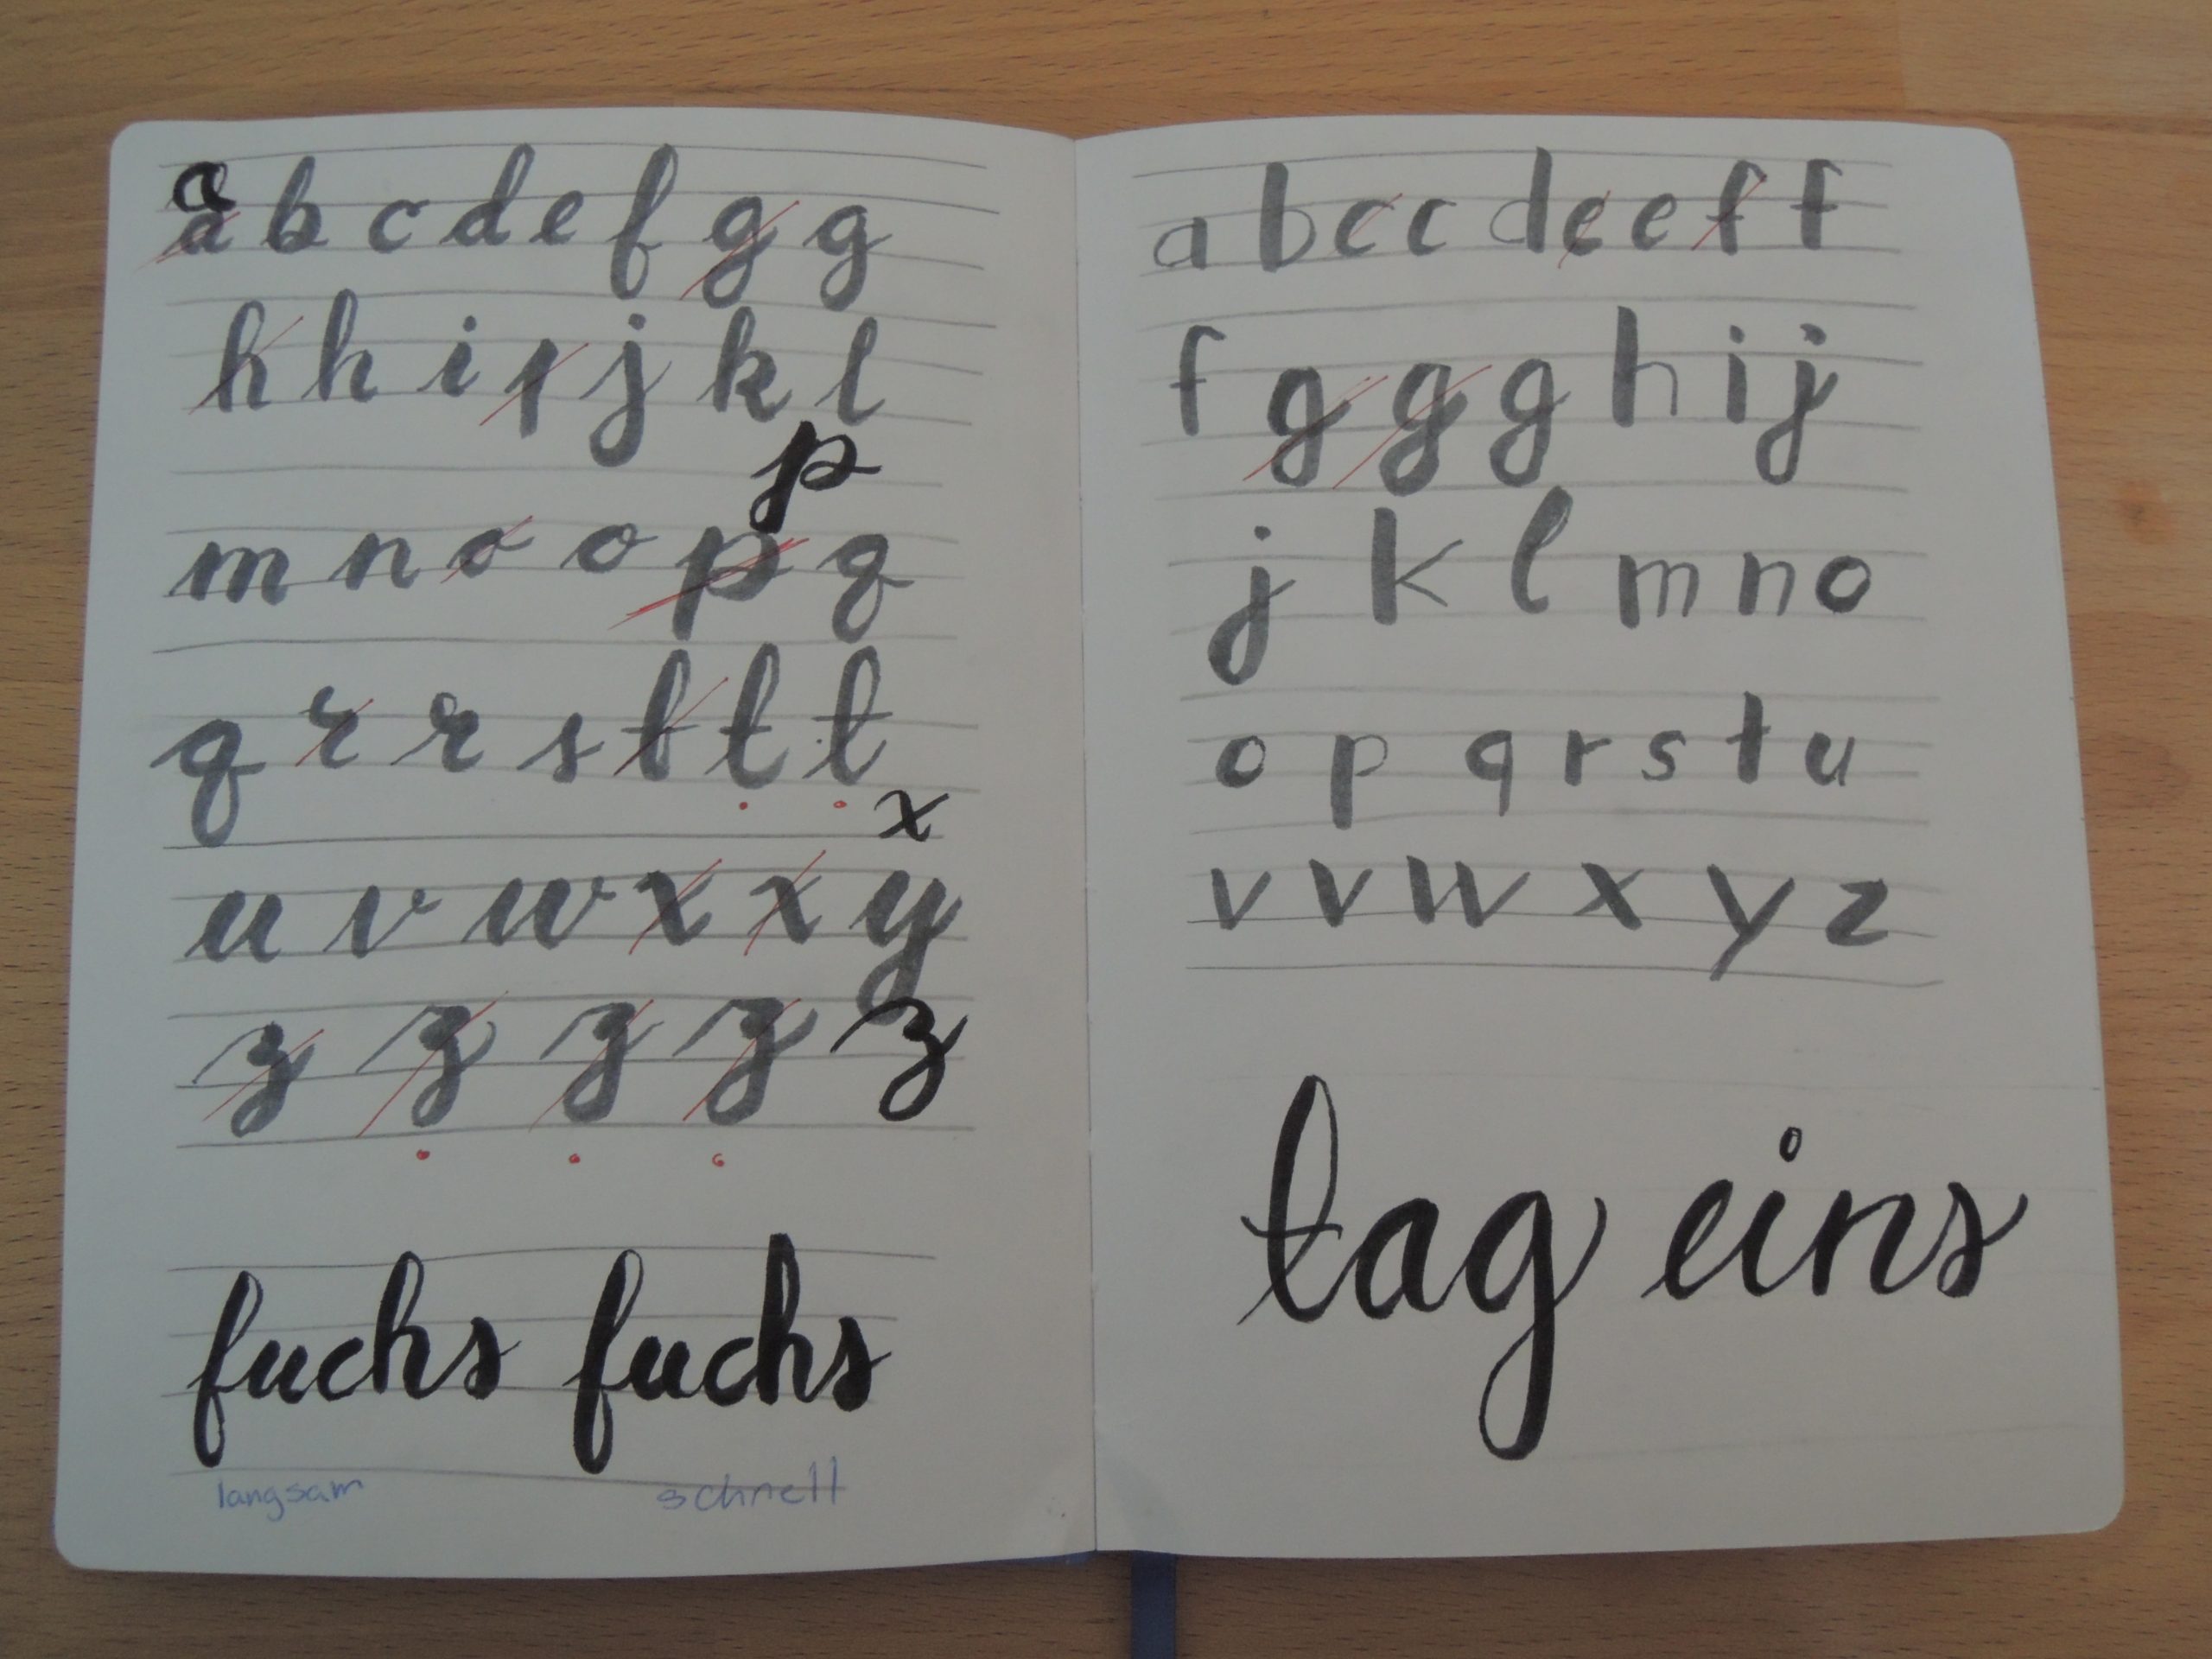 a
a b c d e f g g
h h i j j k l
p
m n o o p q
q r r s t t t
x
u v w x x y
z z z z z
fuchs fuchs
langsam schnell
a b c c d e e f f
f g g g h i j
j k l m n o
o p q r s t u
v v w x y z
tag eins